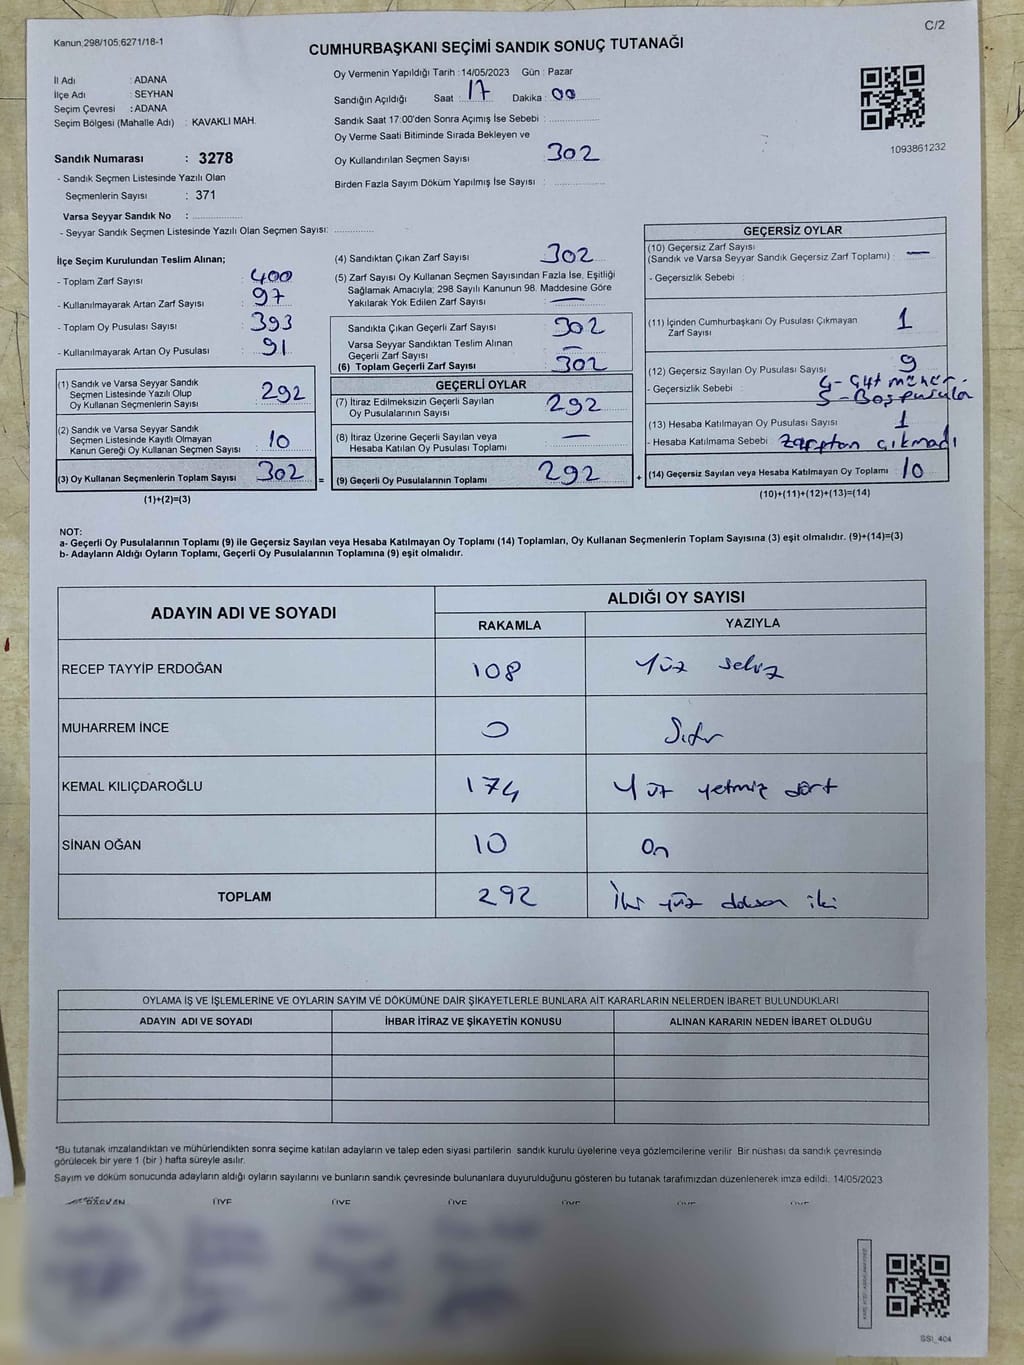 C/2
Kanun:298/105;6271/18-1
CUMHURBAŞKANI SEÇİMİ SANDIK SONUÇ TUTANAĞI
İl Adı : ADANA
İlçe Adı : SEYHAN
Seçim Çevresi : ADANA
Seçim Bölgesi (Mahalle Adı) : KAVAKLI MAH.
Sandık Numarası : 3278
- Sandık Seçmen Listesinde Yazılı Olan
Seçmenlerin Sayısı : 371
Varsa Seyyar Sandık No :
- Seyyar Sandık Seçmen Listesinde Yazılı Olan Seçmen Sayısı:
Oy Vermenin Yapıldığı Tarih : 14/05/2023 Gün : Pazar
Sandığın Açıldığı Saat : 17 Dakika : 00
Sandık Saat 17:00'den Sonra Açımış İse Sebebi :
Oy Verme Saati Bitiminde Sırada Bekleyen ve
Oy Kullandırılan Seçmen Sayısı : 302
Birden Fazla Sayım Döküm Yapılmış İse Sayısı :
1093861232
İlçe Seçim Kurulundan Teslim Alınan;
- Toplam Zarf Sayısı : 400
- Kullanılmayarak Artan Zarf Sayısı : 97
- Toplam Oy Pusulası Sayısı : 393
- Kullanılmayarak Artan Oy Pusulası : 91
(1) Sandık ve Varsa Seyyar Sandık
Seçmen Listesinde Yazılı Olup
Oy Kullanan Seçmenlerin Sayısı : 292
(2) Sandık ve Varsa Seyyar Sandık
Seçmen Listesinde Kayıtlı Olmayan
Kanun Gereği Oy Kullanan Seçmen Sayısı : 10
(3) Oy Kullanan Seçmenlerin Toplam Sayısı : 302 =
(1)+(2)=(3)
(4) Sandıktan Çıkan Zarf Sayısı : 302
(5) Zarf Sayısı Oy Kullanan Seçmen Sayısından Fazla İse, Eşitliği
Sağlamak Amacıyla; 298 Sayılı Kanunun 98. Maddesine Göre
Yakılarak Yok Edilen Zarf Sayısı : —
Sandıkta Çıkan Geçerli Zarf Sayısı : 302
Varsa Seyyar Sandıktan Teslim Alınan
Geçerli Zarf Sayısı : —
(6) Toplam Geçerli Zarf Sayısı : 302
GEÇERLİ OYLAR
(7) İtiraz Edilmeksizin Geçerli Sayılan
Oy Pusulalarının Sayısı : 292
(8) İtiraz Üzerine Geçerli Sayılan veya
Hesaba Katılan Oy Pusulası Toplamı : —
(9) Geçerli Oy Pusulalarının Toplamı : 292 +
GEÇERSİZ OYLAR
(10) Geçersiz Zarf Sayısı
(Sandık ve Varsa Seyyar Sandık Geçersiz Zarf Toplamı) : —
- Geçersizlik Sebebi :
(11) İçinden Cumhurbaşkanı Oy Pusulası Çıkmayan
Zarf Sayısı : 1
(12) Geçersiz Sayılan Oy Pusulası Sayısı : 9
- Geçersizlik Sebebi : 4-Çift mühür.
5-Boş pusula
(13) Hesaba Katılmayan Oy Pusulası Sayısı : 1
- Hesaba Katılmama Sebebi : Zarftan çıkmadı
(14) Geçersiz Sayılan veya Hesaba Katılmayan Oy Toplamı : 10
(10)+(11)+(12)+(13)=(14)
NOT:
a- Geçerli Oy Pusulalarının Toplamı (9) ile Geçersiz Sayılan veya Hesaba Katılmayan Oy Toplamı (14) Toplamları, Oy Kullanan Seçmenlerin Toplam Sayısına (3) eşit olmalıdır. (9)+(14)=(3)
b- Adayların Aldığı Oyların Toplamı, Geçerli Oy Pusulalarının Toplamına (9) eşit olmalıdır.
ADAYIN ADI VE SOYADI
ALDIĞI OY SAYISI
RAKAMLA YAZIYLA
RECEP TAYYİP ERDOĞAN 108 Yüz sekiz
MUHARREM İNCE 0 Sıfır
KEMAL KILIÇDAROĞLU 174 Yüz yetmiş dört
SİNAN OĞAN 10 On
TOPLAM 292 İki yüz doksan iki
OYLAMA İŞ VE İŞLEMLERİNE VE OYLARIN SAYIM VE DÖKÜMÜNE DAİR ŞİKAYETLERLE BUNLARA AİT KARARLARIN NELERDEN İBARET BULUNDUKLARI
ADAYIN ADI VE SOYADI İHBAR İTİRAZ VE ŞİKAYETİN KONUSU ALINAN KARARIN NEDEN İBARET OLDUĞU
*Bu tutanak imzalandıktan ve mühürlendikten sonra seçime katılan adayların ve talep eden siyasi partilerin sandık kurulu üyelerine veya gözlemcilerine verilir Bir nüshası da sandık çevresinde
görülecek bir yere 1 (bir ) hafta süreyle asılır.
Sayım ve döküm sonucunda adayların aldığı oyların sayılarını ve bunların sandık çevresinde bulunanlara duyurulduğunu gösteren bu tutanak tarafımızdan düzenlenerek imza edildi. 14/05/2023
ÜYE ÜYE ÜYE ÜYE ÜYE ÜYE
SSI_404